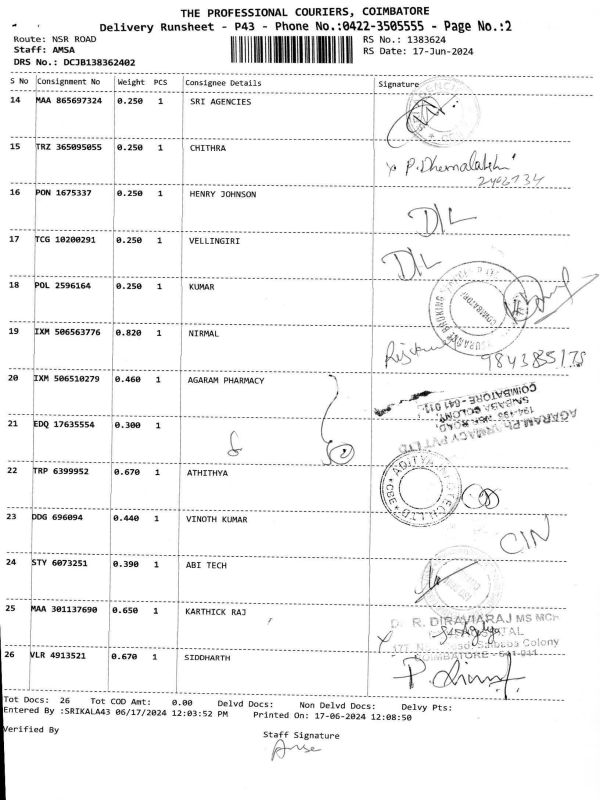 THE PROFESSIONAL COURIERS, COIMBATORE
Delivery Runsheet - P43 - Phone No.:0422-3505555 - Page No.:2
Route: NSR ROAD RS No.: 1383624
Staff: AMSA RS Date: 17-Jun-2024
DRS No.: DCJB138362402
S No Consignment No Weight PCS Consignee Details Signature
14 MAA 865697324 0.250 1 SRI AGENCIES
15 TRZ 365095055 0.250 1 CHITHRA
16 PON 1675337 0.250 1 HENRY JOHNSON
D/L
17 TCG 10200291 0.250 1 VELLINGIRI
D/L
18 POL 2596164 0.250 1 KUMAR
19 IXM 506563776 0.820 1 NIRMAL
20 IXM 506510279 0.460 1 AGARAM PHARMACY
AGARAM PHARMACY PVT LTD
194-496 NSR ROAD,
SAIBABA COLONY,
COIMBATORE - 641 011.
21 EDQ 17635554 0.300 1
22 TRP 6399952 0.670 1 ATHITHYA
23 DDG 696094 0.440 1 VINOTH KUMAR
CIN
24 STY 6073251 0.390 1 ABI TECH
25 MAA 301137690 0.650 1 KARTHICK RAJ
R. DIRAVIARAJ MS MCh
Saibaba Colony
COIMBATORE - 641 011
26 VLR 4913521 0.670 1 SIDDHARTH
Tot Docs: 26 Tot COD Amt: 0.00 Delvd Docs: Non Delvd Docs: Delvy Pts:
Entered By :SRIKALA43 06/17/2024 12:03:52 PM Printed On: 17-06-2024 12:08:50
Verified By Staff Signature